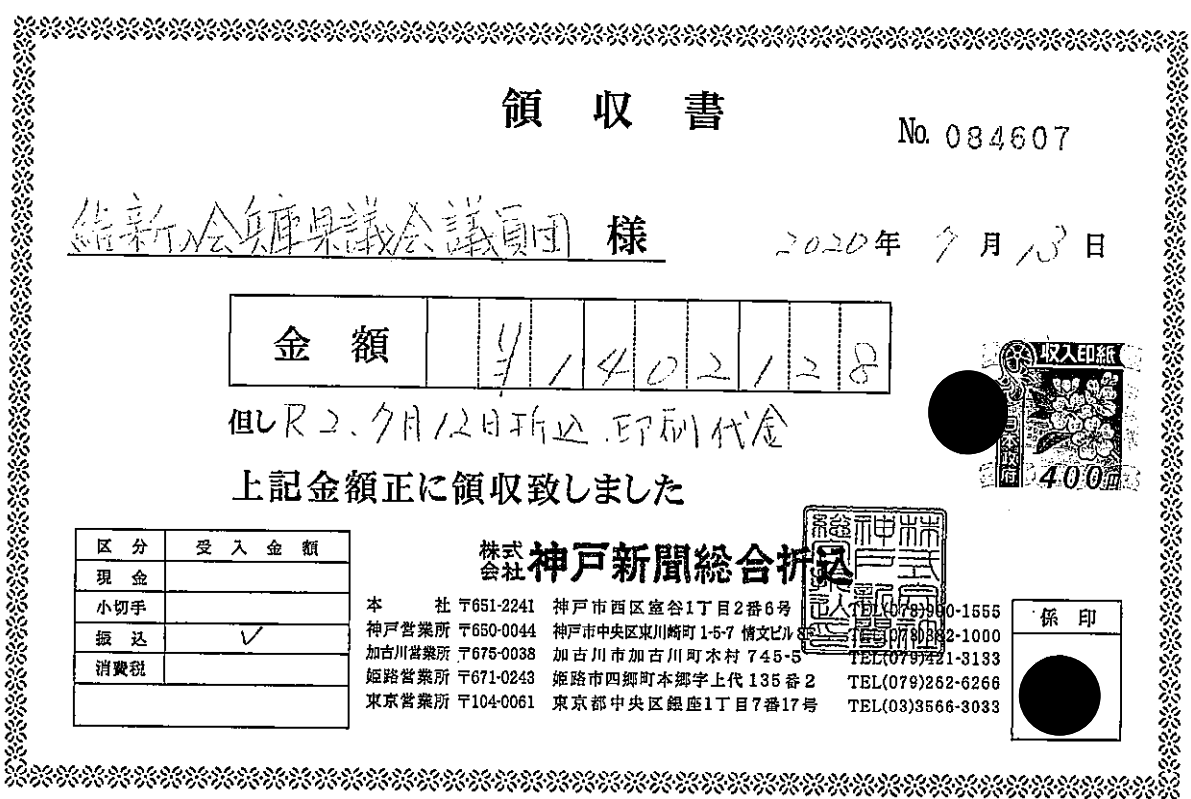 領収書
No. 084607
維新の会兵庫県議会議員団 様
2020年 7月 13日
金額 ¥1402128
但し R2.7月12日折込.印刷代金
上記金額正に領収致しました
収入印紙
日本政府
400円
区分 受入金額
現金
小切手
振込 ✓
消費税
株式会社 神戸新聞総合折込
本社 〒651-2241 神戸市西区室谷1丁目2番6号 TEL(078)990-1555
神戸営業所 〒650-0044 神戸市中央区東川崎町1-5-7 情文ビル8F TEL(078)382-1000
加古川営業所 〒675-0038 加古川市加古川町木村745-5 TEL(079)421-3133
姫路営業所 〒671-0243 姫路市四郷町本郷字上代135番2 TEL(079)262-6266
東京営業所 〒104-0061 東京都中央区銀座1丁目7番17号 TEL(03)3566-3033
係印